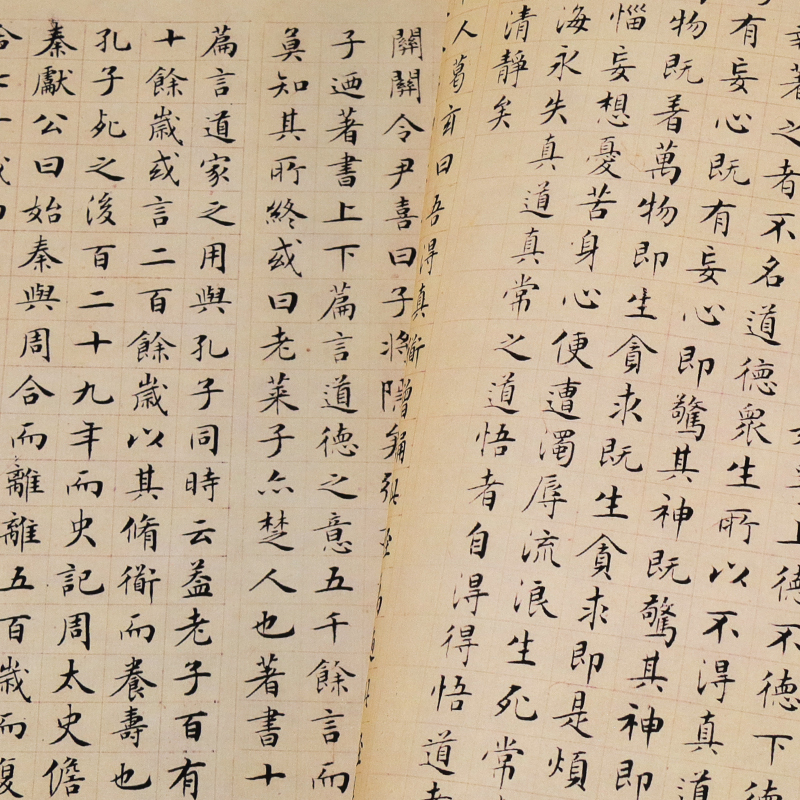 上德不德下德
著之者不名道德衆生所以不得真道
有妄心既有妄心即驚其神既驚其神即
物既著萬物即生貪求既生貪求即是煩
惱妄想憂苦身心便遭濁辱流浪生死常
海永失真道真常之道悟者自得得悟道
清靜矣
人葛玄曰吾得真
關關令尹喜曰子將隱
子迺著書上下篇言道德之意五千餘言而
莫知其所終或曰老萊子亦楚人也著書十
篇言道家之用與孔子同時云蓋老子百有
十餘歲或言二百餘歲以其脩術而養壽也
孔子死之後百二十九年而史記周太史儋
秦獻公曰始秦與周合而離離五百歲而復